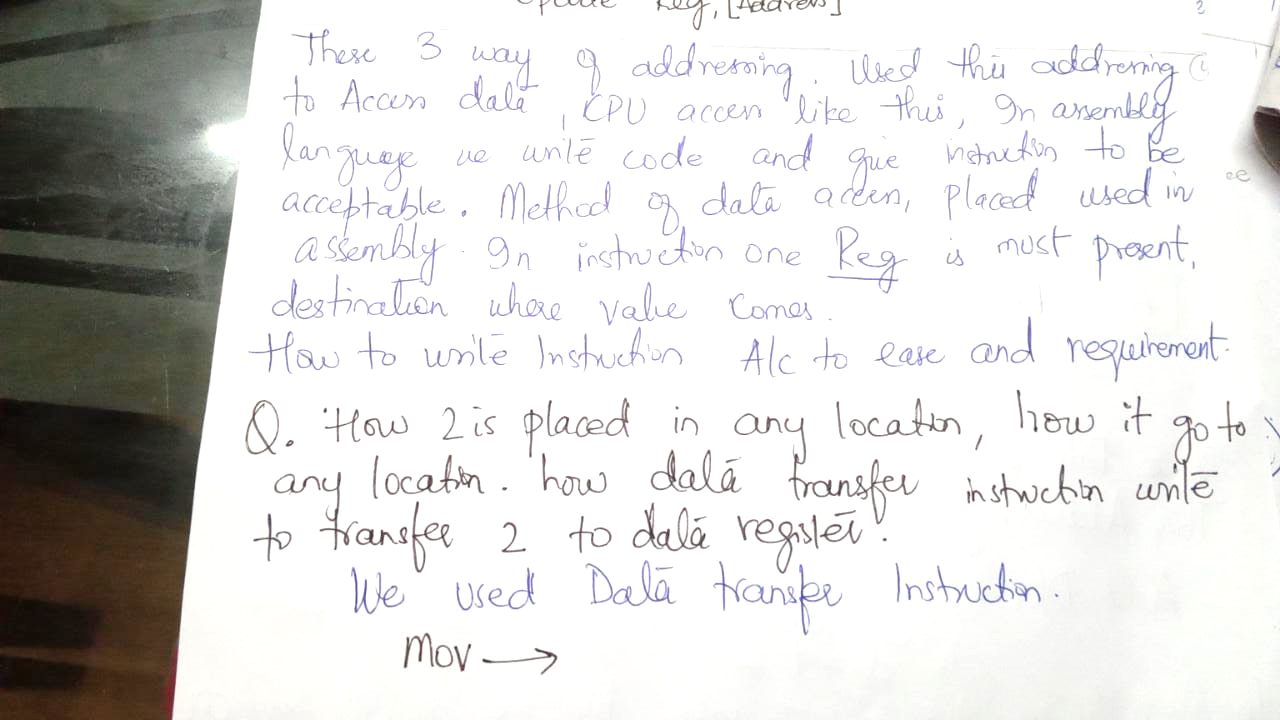 Opcode Reg, [Address]
These 3 way of addressing. Used this addressing
to Access data, CPU access like this, In assembly
language we write code and give instruction to be
acceptable. Method of data access, placed used in
assembly. In instruction one Reg is must present,
destination where value comes.
How to write Instruction A/c to ease and requirement.
Q. How 2 is placed in any location, how it go to
any location. how data transfer instruction write
to transfer 2 to data register.
We used Data transfer Instruction.
Mov →